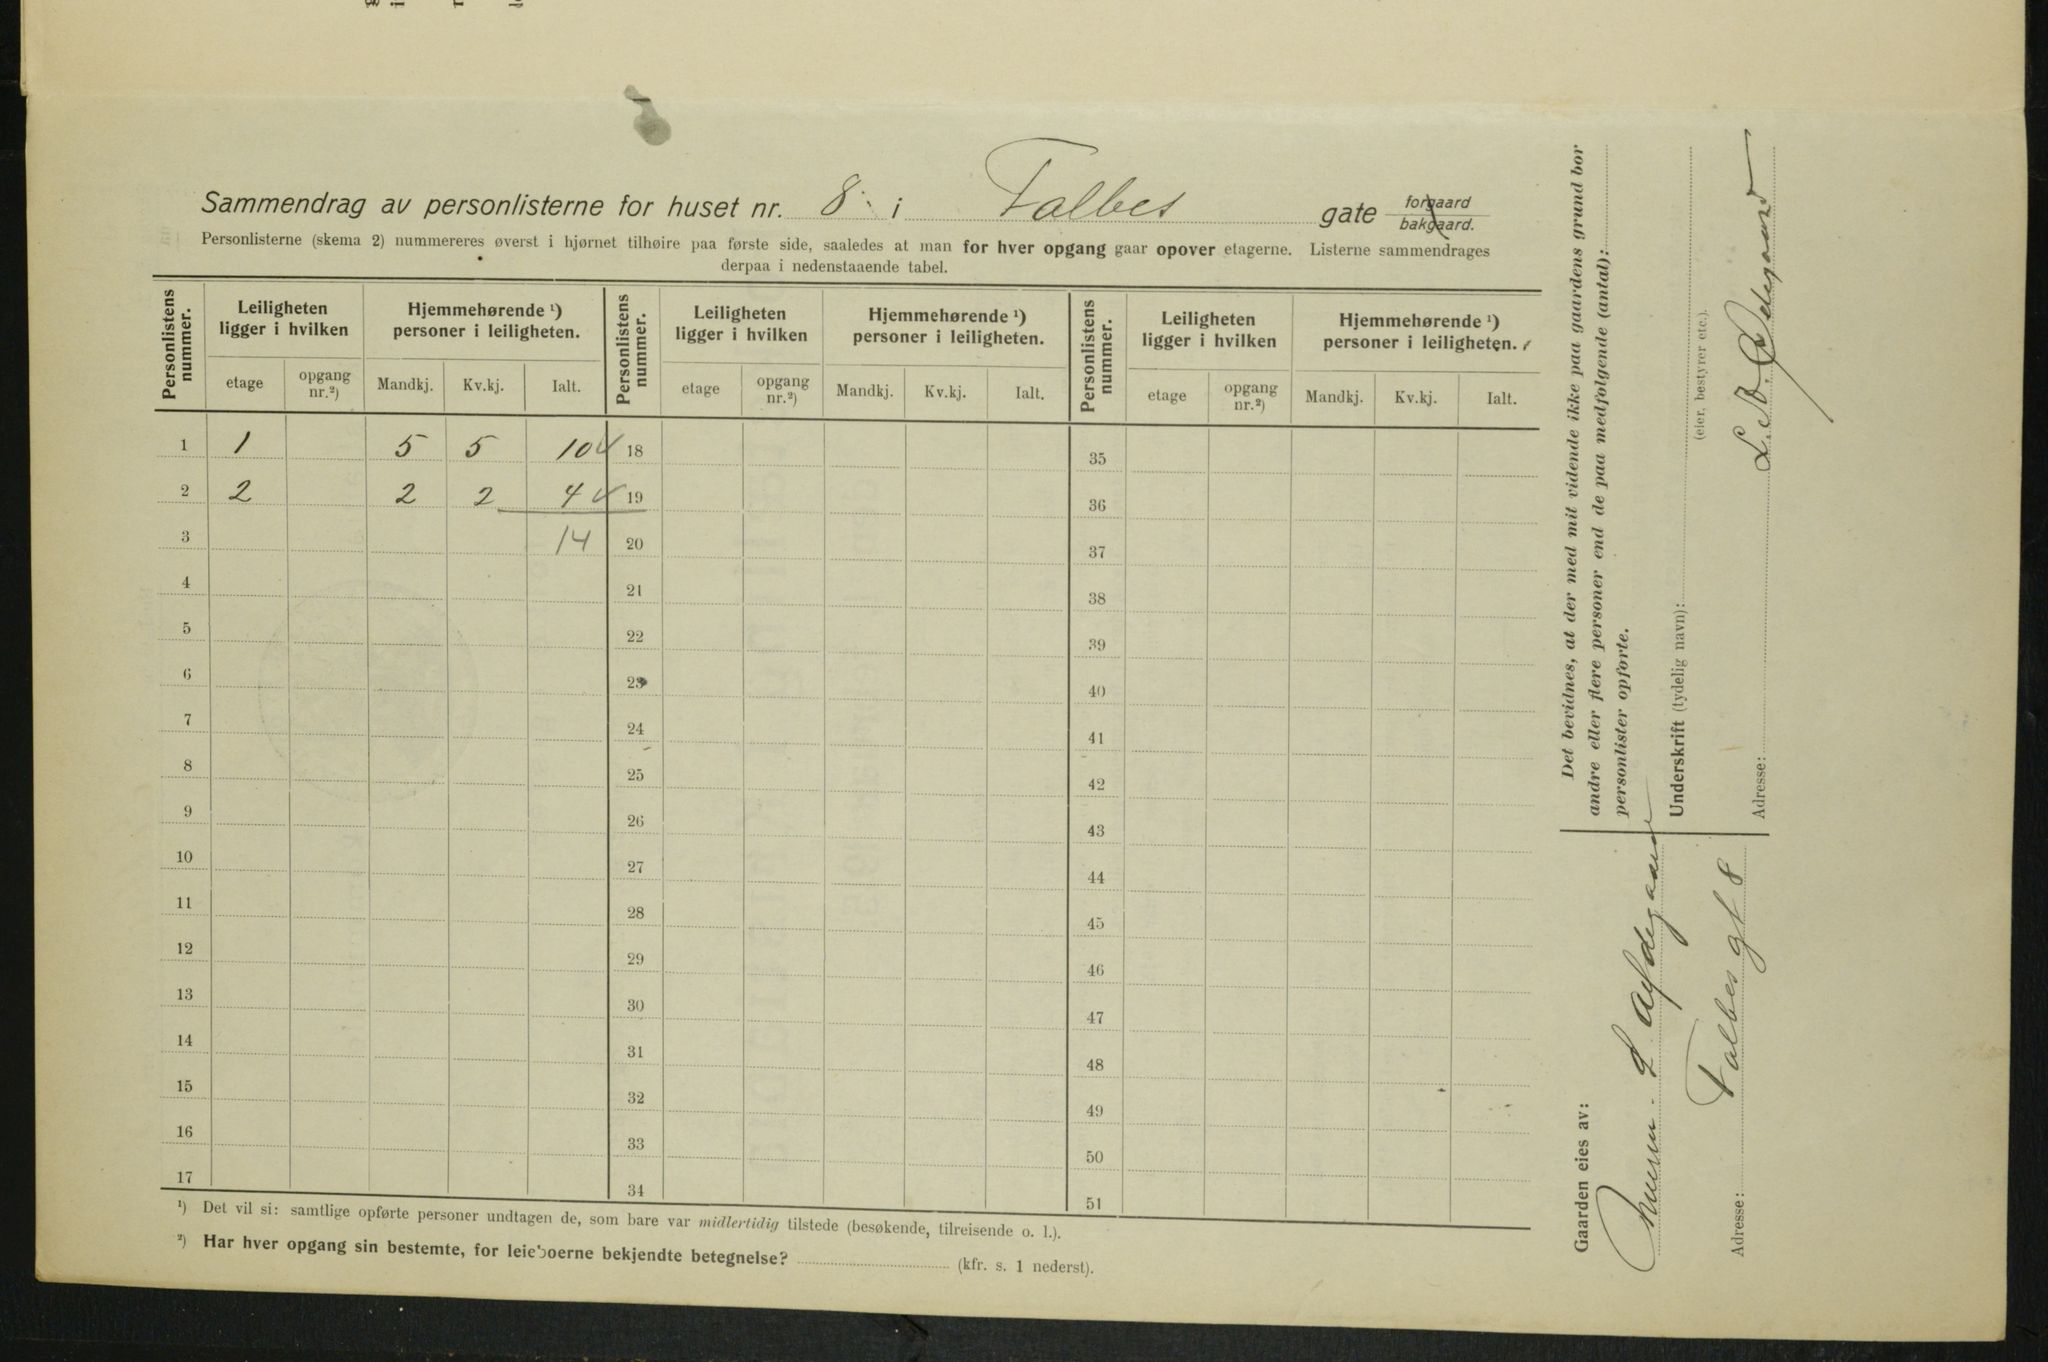 Sammendrag av personlisterne for huset nr. 8 i Falbes gate forgaard bakgaard.
Personlisterne (skema 2) nummereres øverst i hjørnet tilhøire paa første side, saaledes at man for hver opgang gaar opover etagerne. Listerne sammendrages
derpaa i nedenstaaende tabel.
Personlistens nummer. Leiligheten ligger i hvilken Hjemmehørende ¹) personer i leiligheten. Personlistens nummer. Leiligheten ligger i hvilken Hjemmehørende ¹) personer i leiligheten. Personlistens nummer. Leiligheten ligger i hvilken Hjemmehørende ¹) personer i leiligheten.
etage opgang nr.²) Mandkj. Kv.kj. Ialt. etage opgang nr.²) Mandkj. Kv.kj. Ialt. etage opgang nr.²) Mandkj. Kv.kj. Ialt.
1 1 5 5 10 18 35
2 2 2 2 4 19 36
3 14 20 37
4 21 38
5 22 39
6 23 40
7 24 41
8 25 42
9 26 43
10 27 44
11 28 45
12 29 46
13 30 47
14 31 48
15 32 49
16 33 50
17 34 51
¹) Det vil si: samtlige opførte personer undtagen de, som bare var midlertidig tilstede (besøkende, tilreisende o. l.).
²) Har hver opgang sin bestemte, for leieboerne bekjendte betegnelse? (kfr. s. 1 nederst).
Gaarden eies av:
L. Ødegaard
Adresse: Falbes gt 8
Det bevidnes, at der med mit vidende ikke paa gaardens grund bor
andre eller flere personer end de paa medfølgende (antal):
personlister opførte.
Underskrift (tydelig navn):
(eier, bestyrer etc.).
Ødegaard
Adresse: